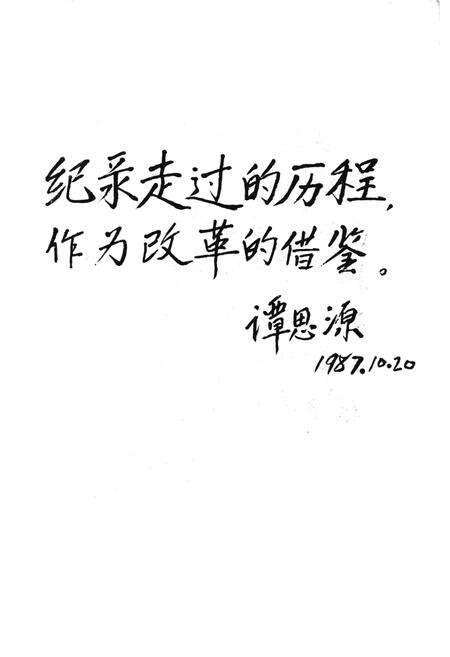 纪录走过的历程,
作为改革的借鉴。
谭思源
1987.10.20